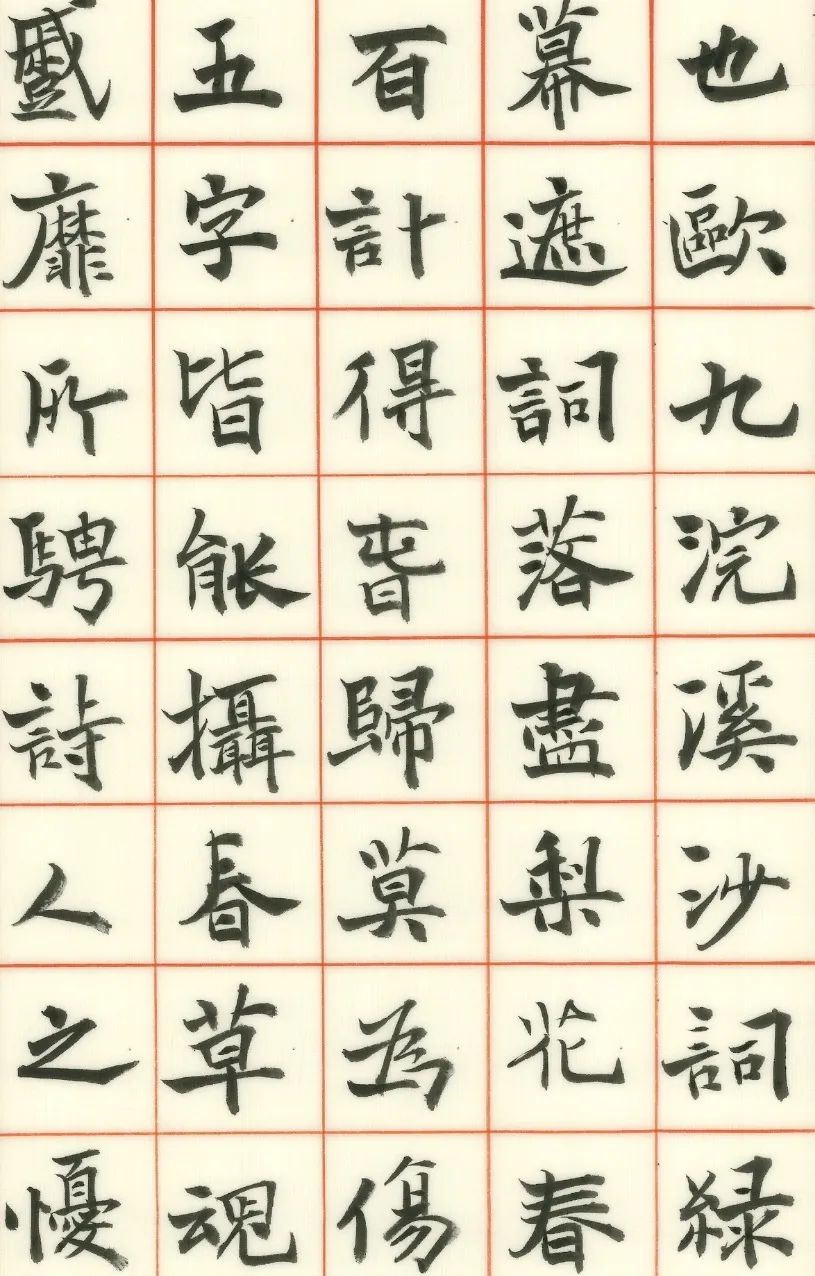 也歐九浣溪沙詞緑
幕遮詞落盡梨花春
百計得旾歸莫為傷
五字皆能攝春草魂
蹙靡所騁詩人之憂